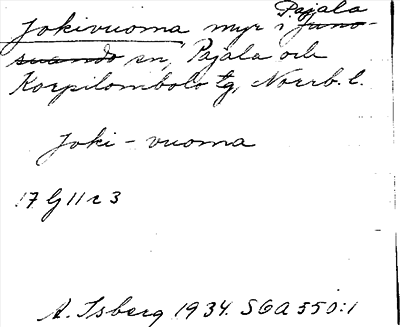 Pajala
Jokivuoma myr i Juno-
suando sn, Pajala och
Korpilombolo tg, Norrb. l.
Joki - vuoma
17 G 11 r 3
A. Isberg 1934. SOA 550:1